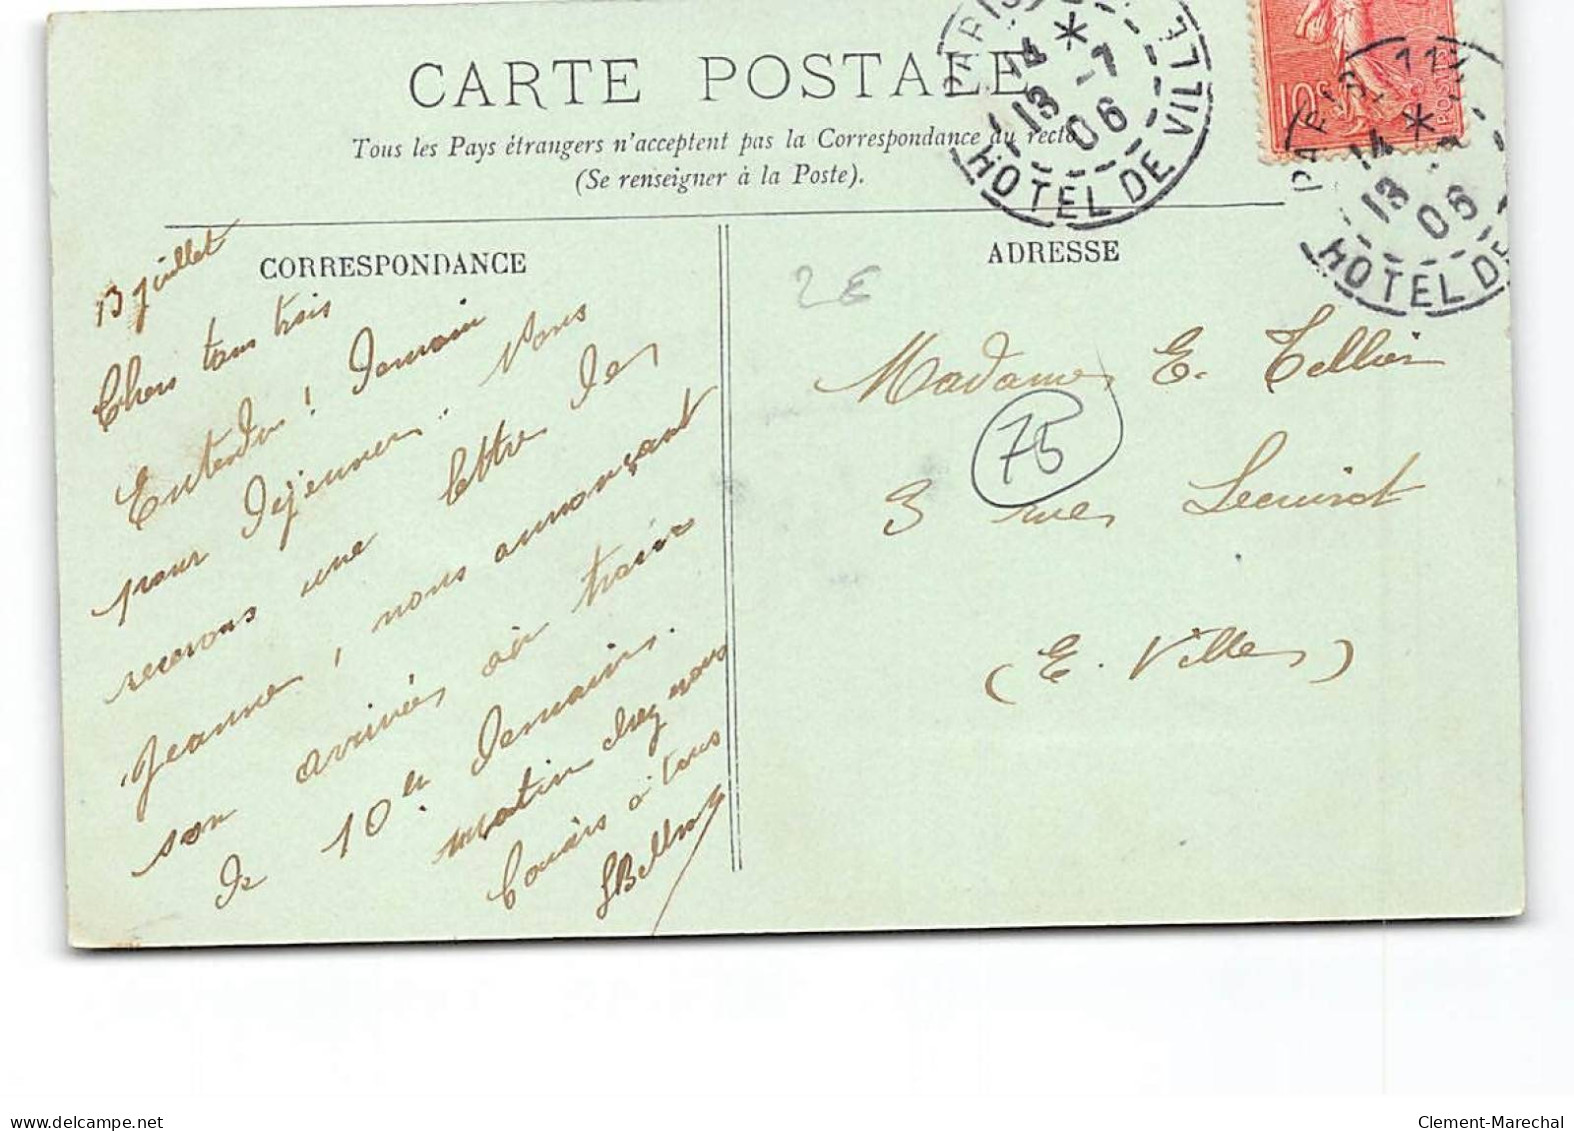 CARTE POSTALE
Tous les Pays étrangers n'acceptent pas la Correspondance au recto
(Se renseigner à la Poste).
CORRESPONDANCE
13 juillet
Chers tous trois
Entendu! Demain
pour déjeuner. Nous
recevons une lettre de
Jeanne, nous annonçant
son arrivée au train
de 10h demain
matin chez nous
à tous
ADRESSE
2€
Madame E. Tellier
75
3 rue
(E. Ville)
PARIS
14 *
13 -7
06
HOTEL DE VILLE
10c
POSTES
PARIS
14 *
13
06
HOTEL DE
delcampe.net
Clement-Marechal